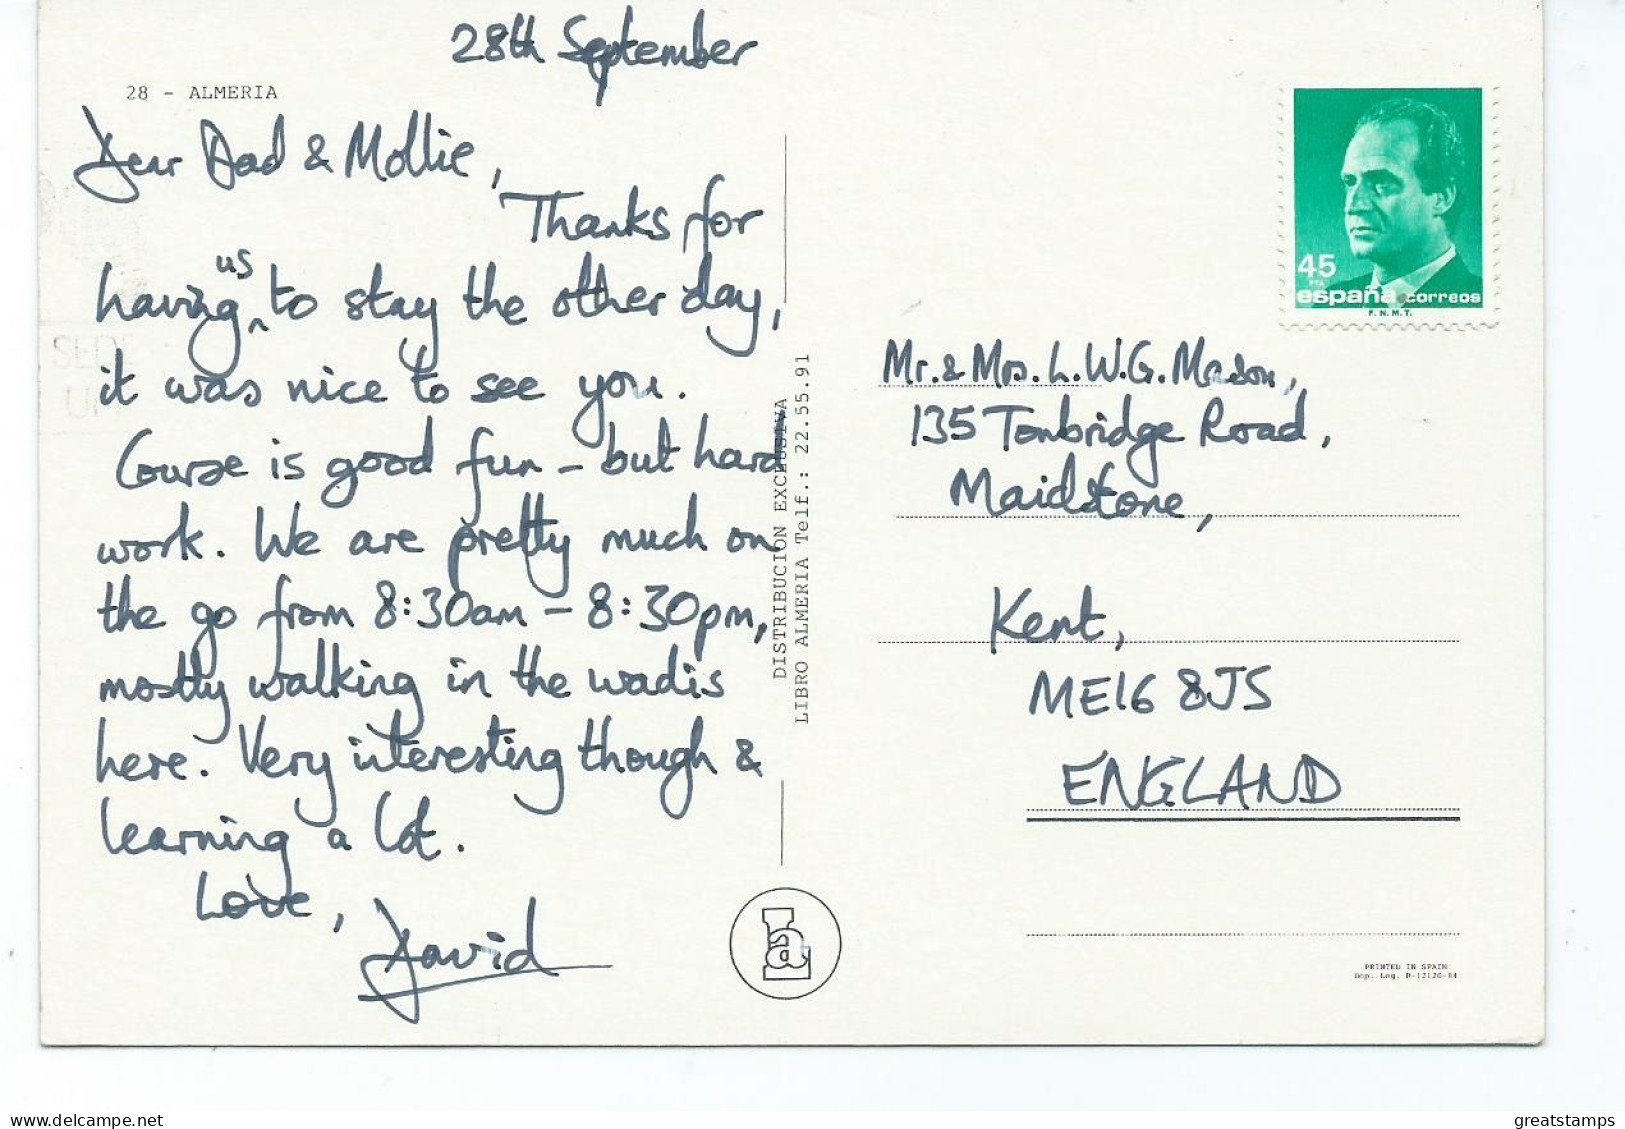 28th September
28 - ALMERIA
Dear Dad & Mollie,
Thanks for
having us to stay the other day,
it was nice to see you.
Course is good fun - but hard
work. We are pretty much on
the go from 8:30am - 8:30pm,
mostly walking in the wadis
here. Very interesting though &
learning a lot.
Love,
David
DISTRIBUCION EXCLUSIVA
LIBRO ALMERIA Telf.: 22.55.91
la
45
PTA
españa correos
F.N.M.T.
Mr. & Mrs. L.W.G. Mason,
135 Tonbridge Road,
Maidstone,
Kent,
ME16 8JS
ENGLAND
PRINTED IN SPAIN
Dep. Leg. B-12120-84
delcampe.net
greatstamps